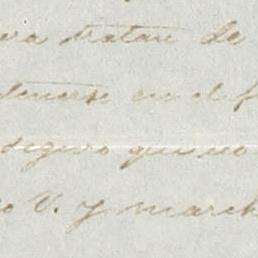 era tratan de
tenerse en el f
seguro que no
o V. y march